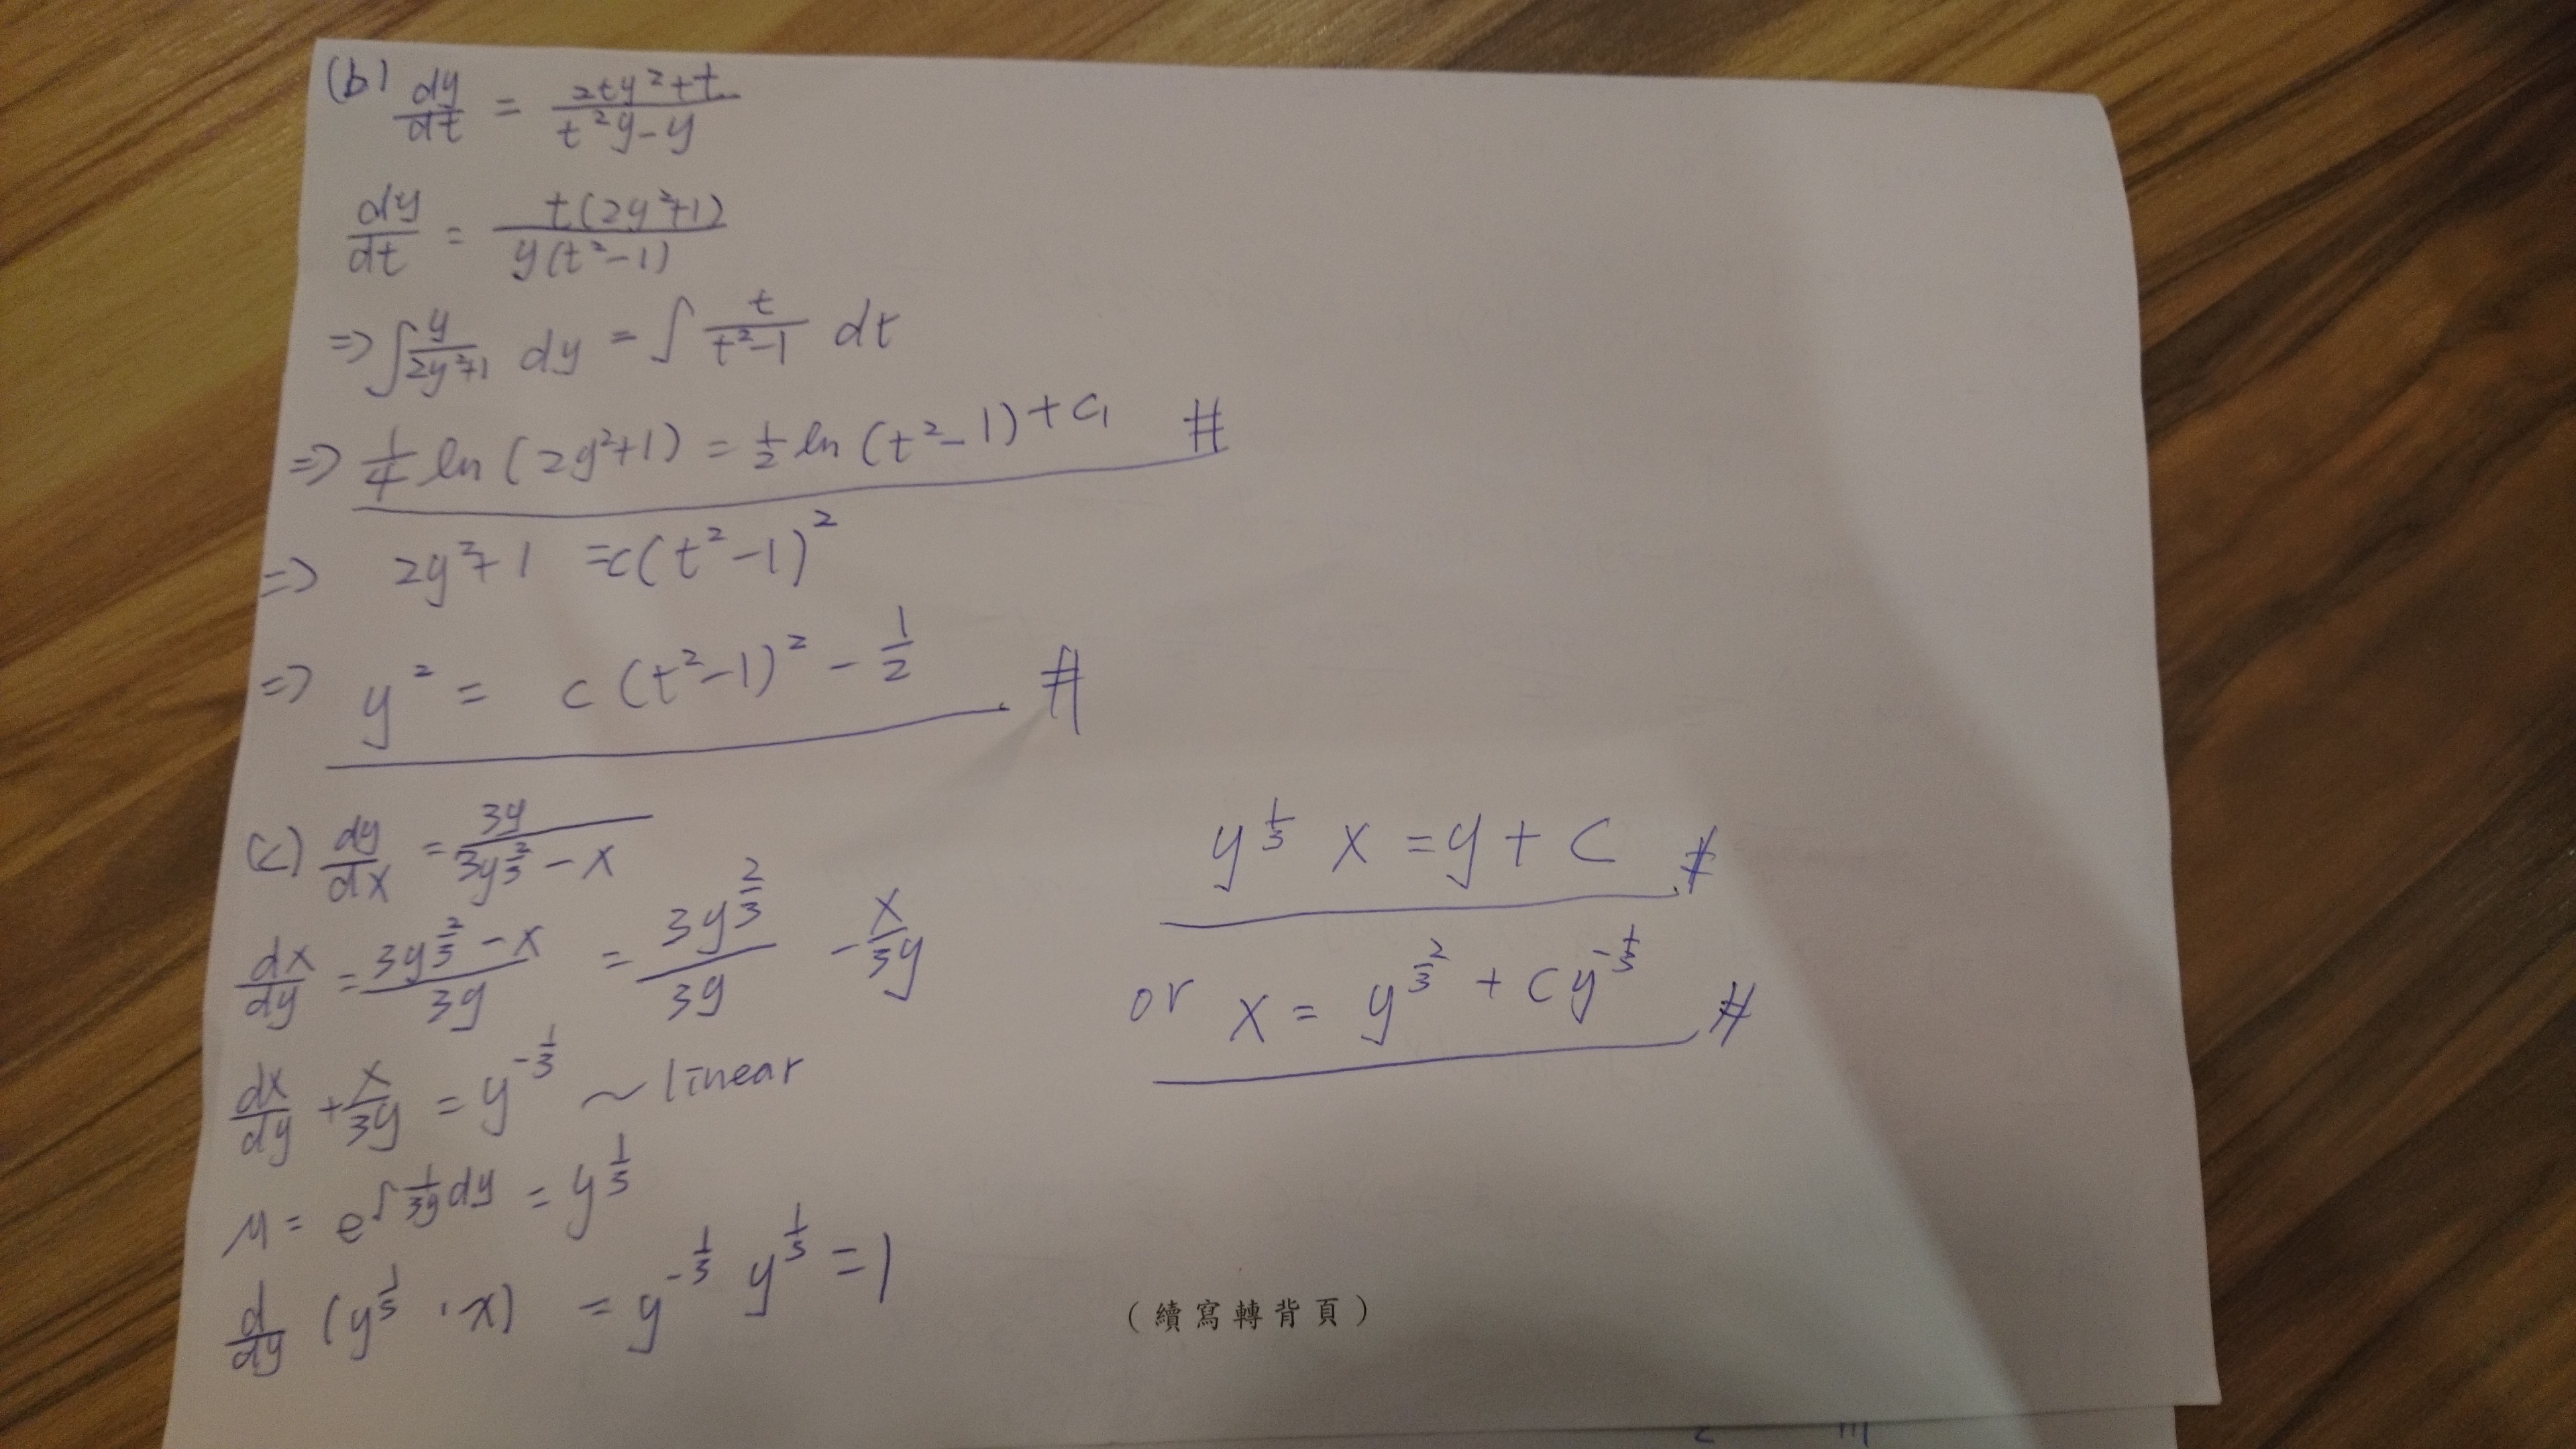 (b) dy/dt = (2ty²+t)/(t²y-y)
dy/dt = t(2y²+1)/(y(t²-1))
=> ∫ y/(2y²+1) dy = ∫ t/(t²-1) dt
=> 1/4 ln(2y²+1) = 1/2 ln(t²-1) + c₁ #
=> 2y²+1 = c(t²-1)²
=> y² = c(t²-1)² - 1/2 #
(c) dy/dx = 3y/(3y^(2/3) - x)
dx/dy = (3y^(2/3) - x)/3y = 3y^(2/3)/3y - x/3y
dx/dy + x/3y = y^(-1/3) ~ linear
μ = e^(∫ 1/3y dy) = y^(1/3)
d/dy (y^(1/3) · x) = y^(-1/3) y^(1/3) = 1
y^(1/3) x = y + C #
or x = y^(2/3) + cy^(-1/3) #
(續寫轉背頁)